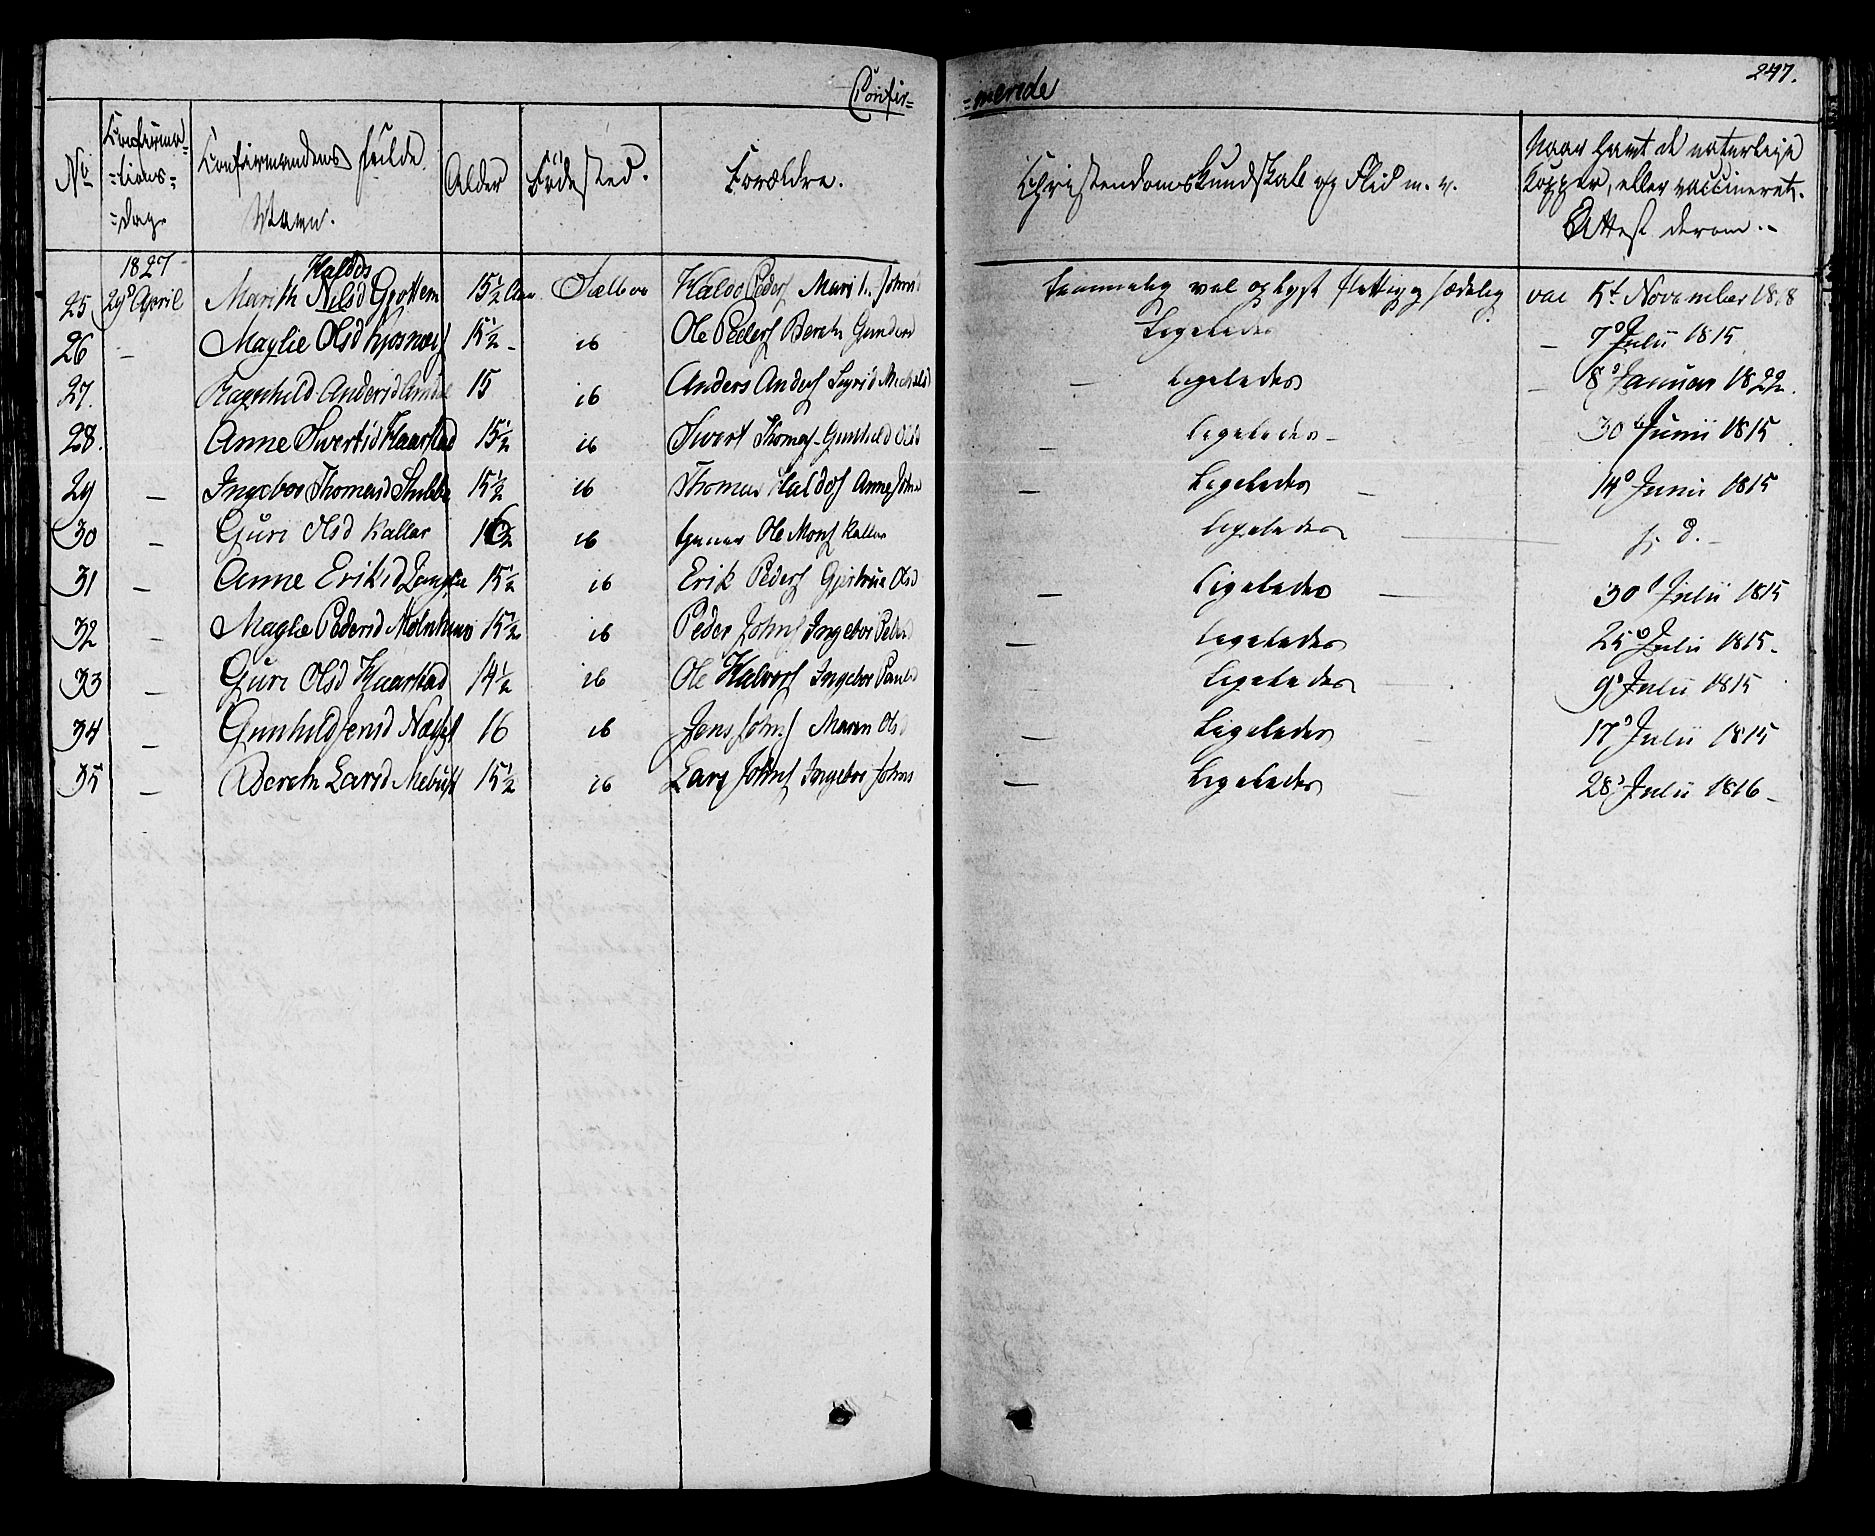 Confir=
=merede
247.
No
Confirma=
=tions=
=dag.
Confirmandens fulde
Navn.
Alder
Födested.
Forældre.
Christendomskundskab og Flid m. v.
Naar havt de naturlige
Kopper, eller vaccineret.
Attest derom.-
1827
25 29d April Marith Nelsd Haldos Grøttem 15½ Aar Sælboe Haldo Peders Marit Johns temmelig vel og flittig og sædelig vac 5t November 1818
26 - Maglie Olsd Kjøsnæs 15½ - ib Ole Peders Bereth Gunders Ligeledes - 7d Julii 1815
27. Ragnhild Andersd 15 ib Anders Anders Sigrid Michelsd - Ligeledes - 8d Januar 1822.
28. Anne Sivertsd Haarstad 15½ ib Sivert Thomas- Gunhild Olsd - Ligeledes - 30te Junii 1815
29 - Ingebor Thomasd Stubbe 15½ ib Thomas Haldos Anne Johns - Ligeledes - 14d Junii 1815
30 - Guri Olsd Kallar 16½ ib Ole Mons Kallar Ligeledes f. d. -
31 - Anne Eriksd Langlie 15½ ib Erik Peders Gjertrue Olsd - Ligeledes - 30d Julii 1815
32 - Maglie Pedersd Molnhuus 15½ ib Peder Johns Ingebor Peders - Ligeledes 25d Julii 1815-
33 - Guri Olsd Haarstad 14½ ib Ole Halvors Ingebor Paulsd Ligeledes 9d Julii 1815
34 - Gunhild Jensd 16 ib Jens Johns Maren Olsd - Ligeledes 17d Julii 1815
35 - Bereth Larsd Mebust 15½ ib Lars Johns Ingebor Johns - Ligeledes 28d Julii 1816-